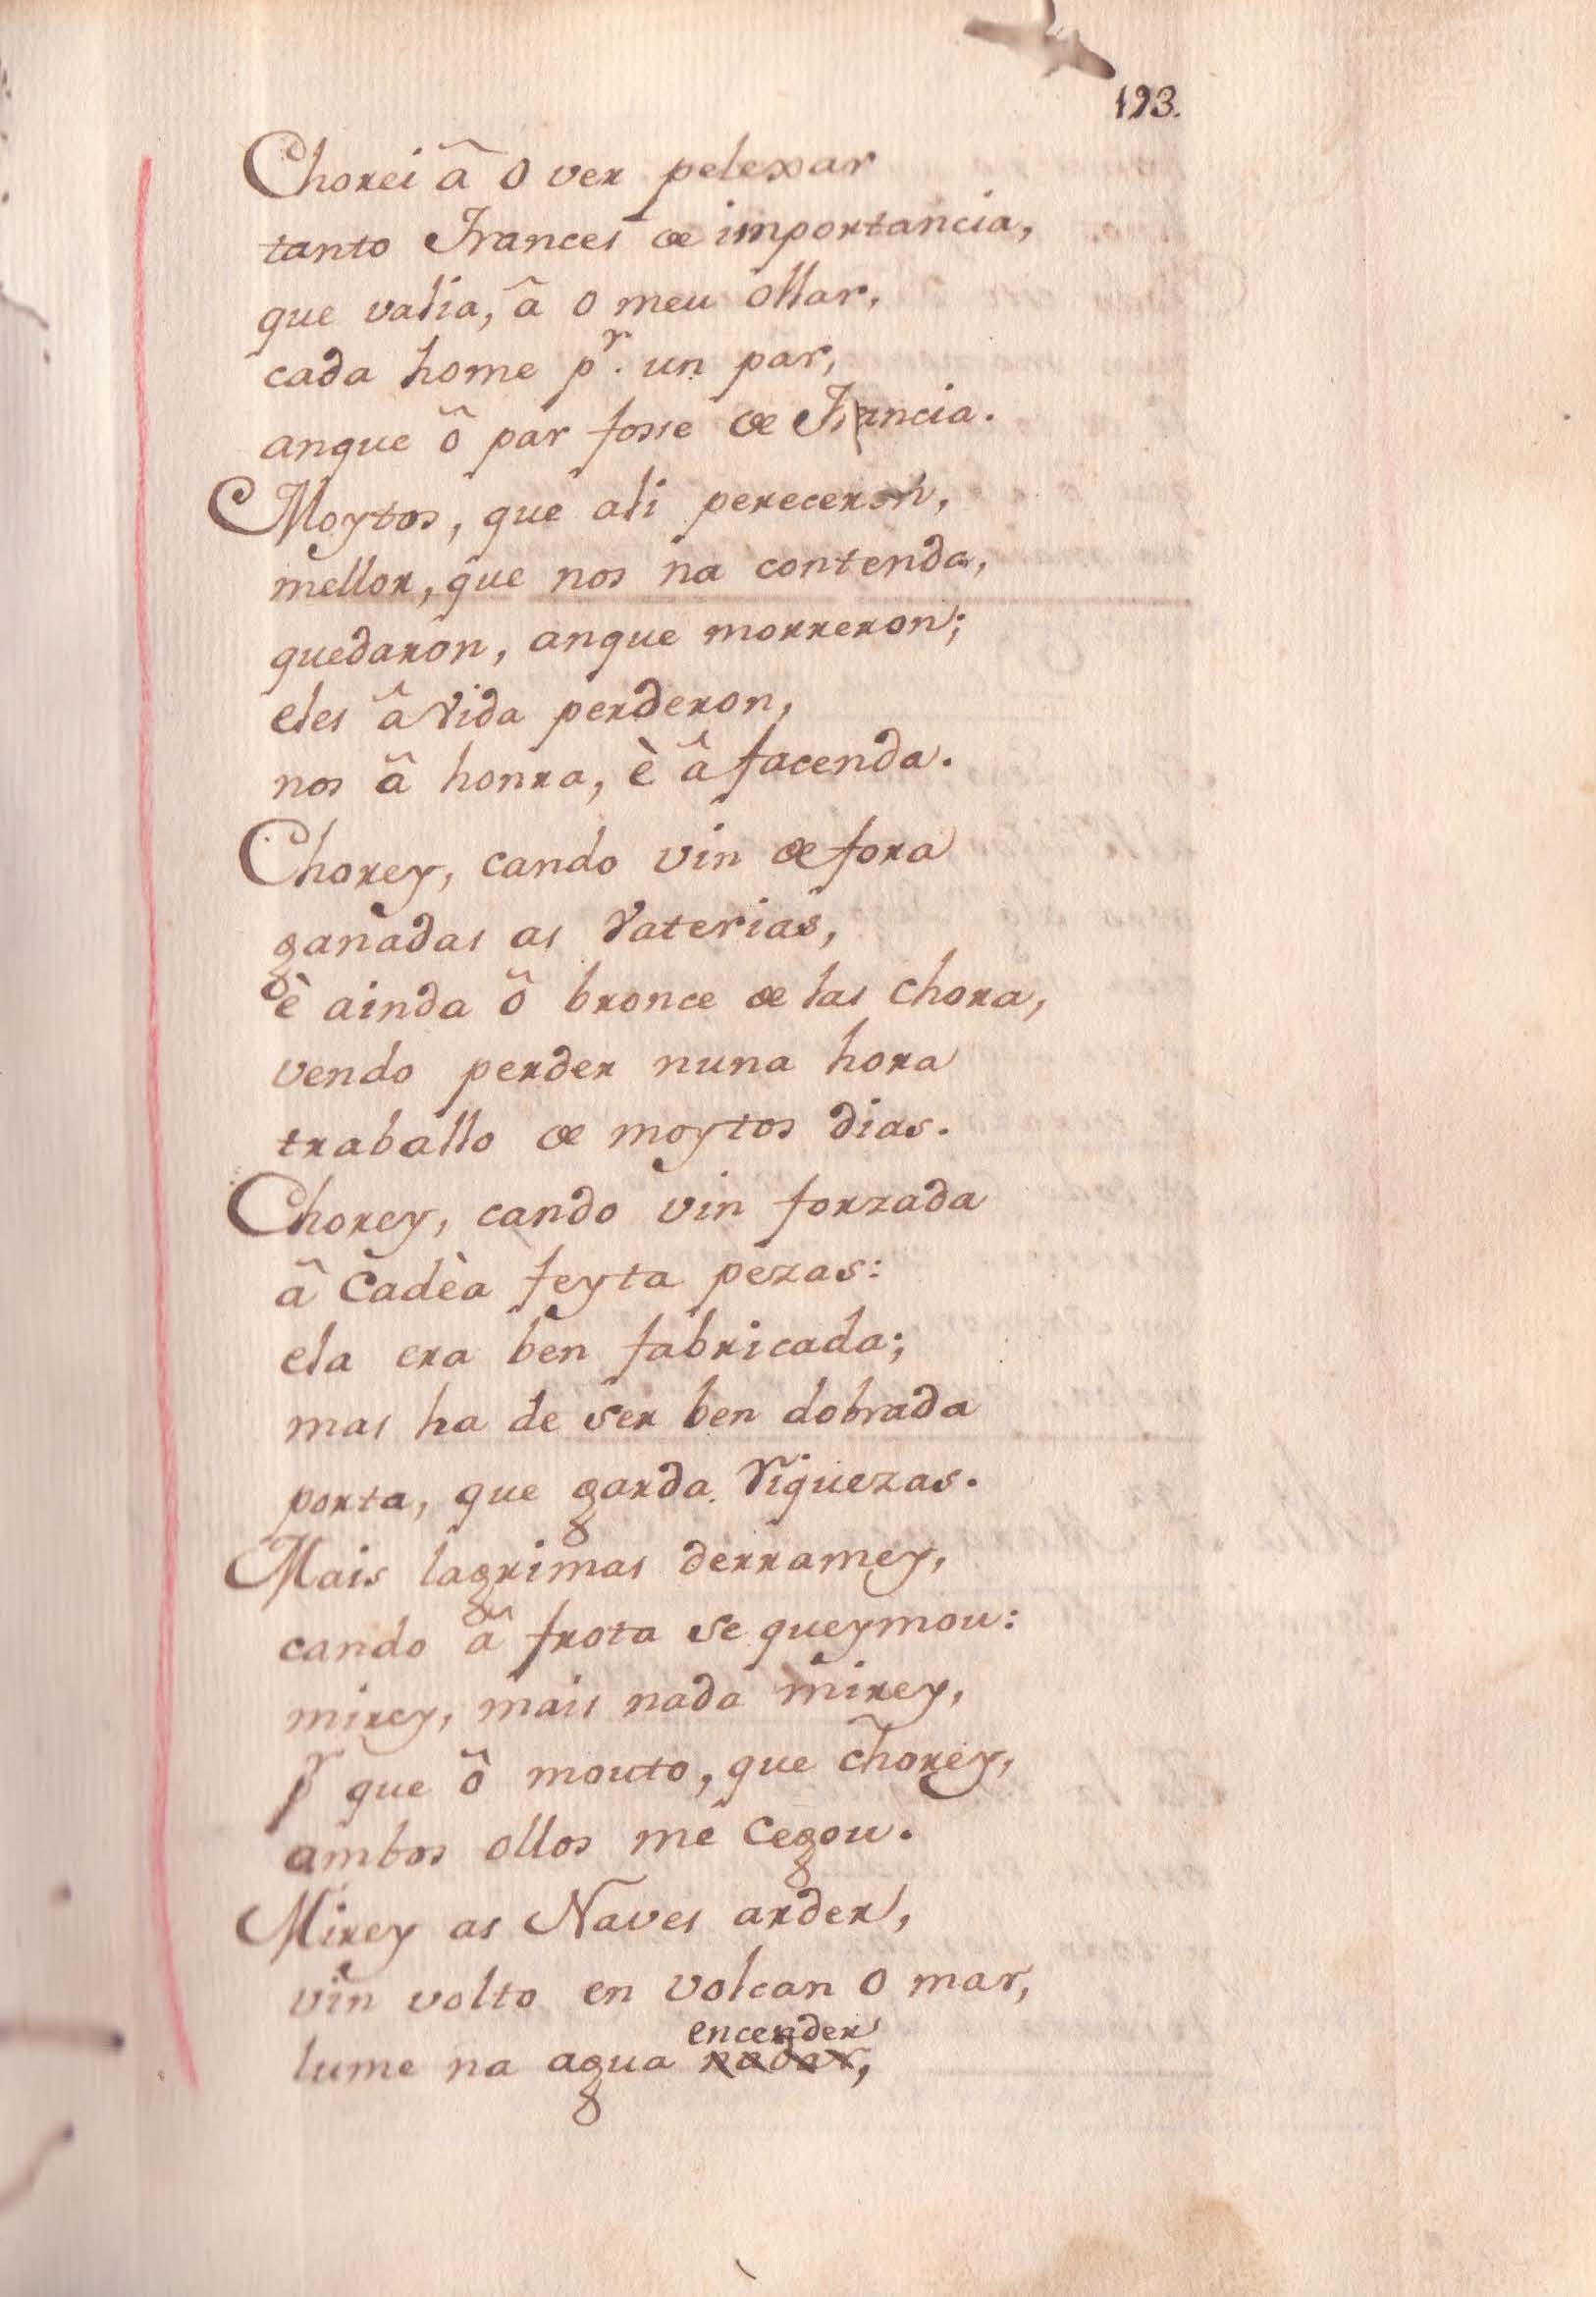 193.
Chorei â o ver pelexar
tanto Frances de importancia,
que valia, â o meu ollar,
cada home pr. un par,
anque ô par fosse de Francia.
Moytos, que ali pereceron,
mellor, que nos na contenda,
quedaron, anque morreron;
eles â vida perderon,
nos â honra, è â facenda.
Chorey, cando vin de fora
ganadas as Vaterias,
è ainda ô bronce de las chora,
vendo perder nuna hora
traballo de moytos dias.
Chorey, cando vin forzada
â Cadèa feyta pezas:
ela era ben fabricada;
mas ha de ser ben dobrada
porta, que garda riquezas.
Mais lagrimas derramey,
cando â frota se queymou:
mirey, mais nada mirey,
pr que ô mouto, que chorey,
ambos ollos me cegou.
Mirey as Naves arder,
vin volto en volcan o mar,
encender
lume na agua nadar,